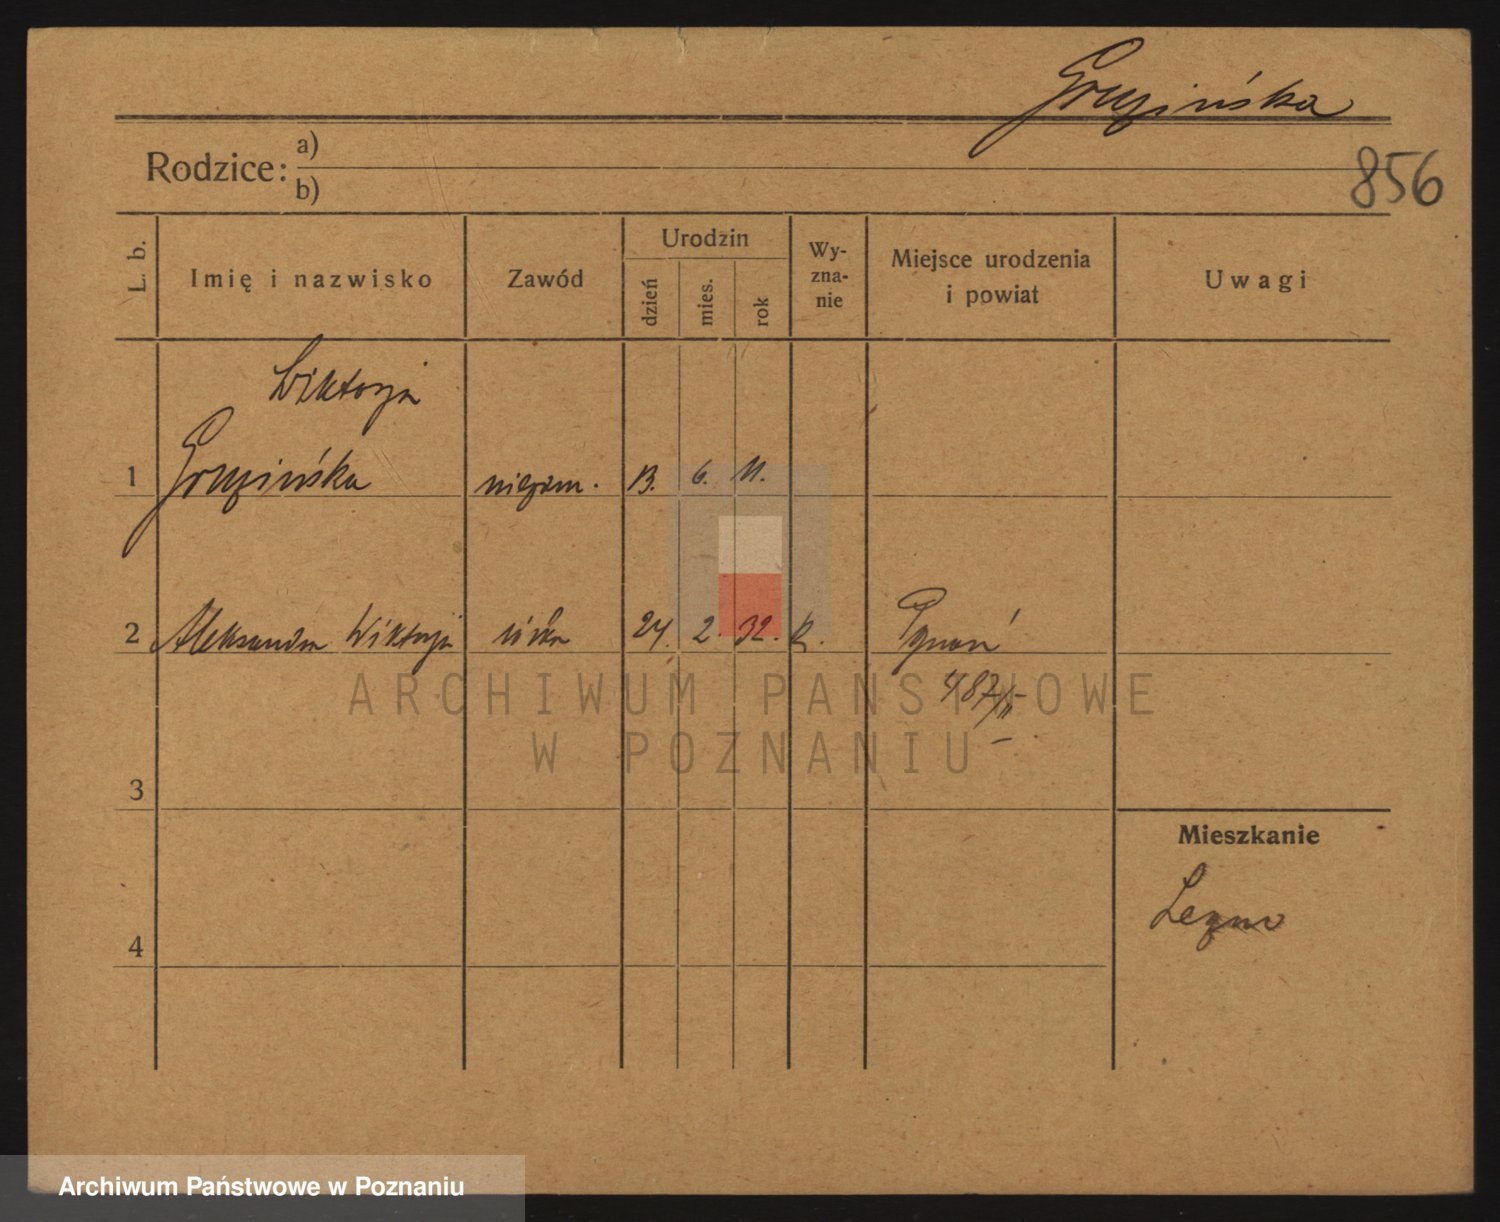 Rodzice: a)
b)
856
L. b.
Imię i nazwisko
Zawód
Urodzin
dzień
mies.
rok
Wy-
zna-
nie
Miejsce urodzenia
i powiat
Uwagi
Wiktorja
1 niezam. 13. 6. 11.
2 Aleksandra Wiktorja córka 24. 2. 32. Poznań
487/II
3
Mieszkanie
4
ARCHIWUM PAŃSTWOWE
W POZNANIU
Archiwum Państwowe w Poznaniu